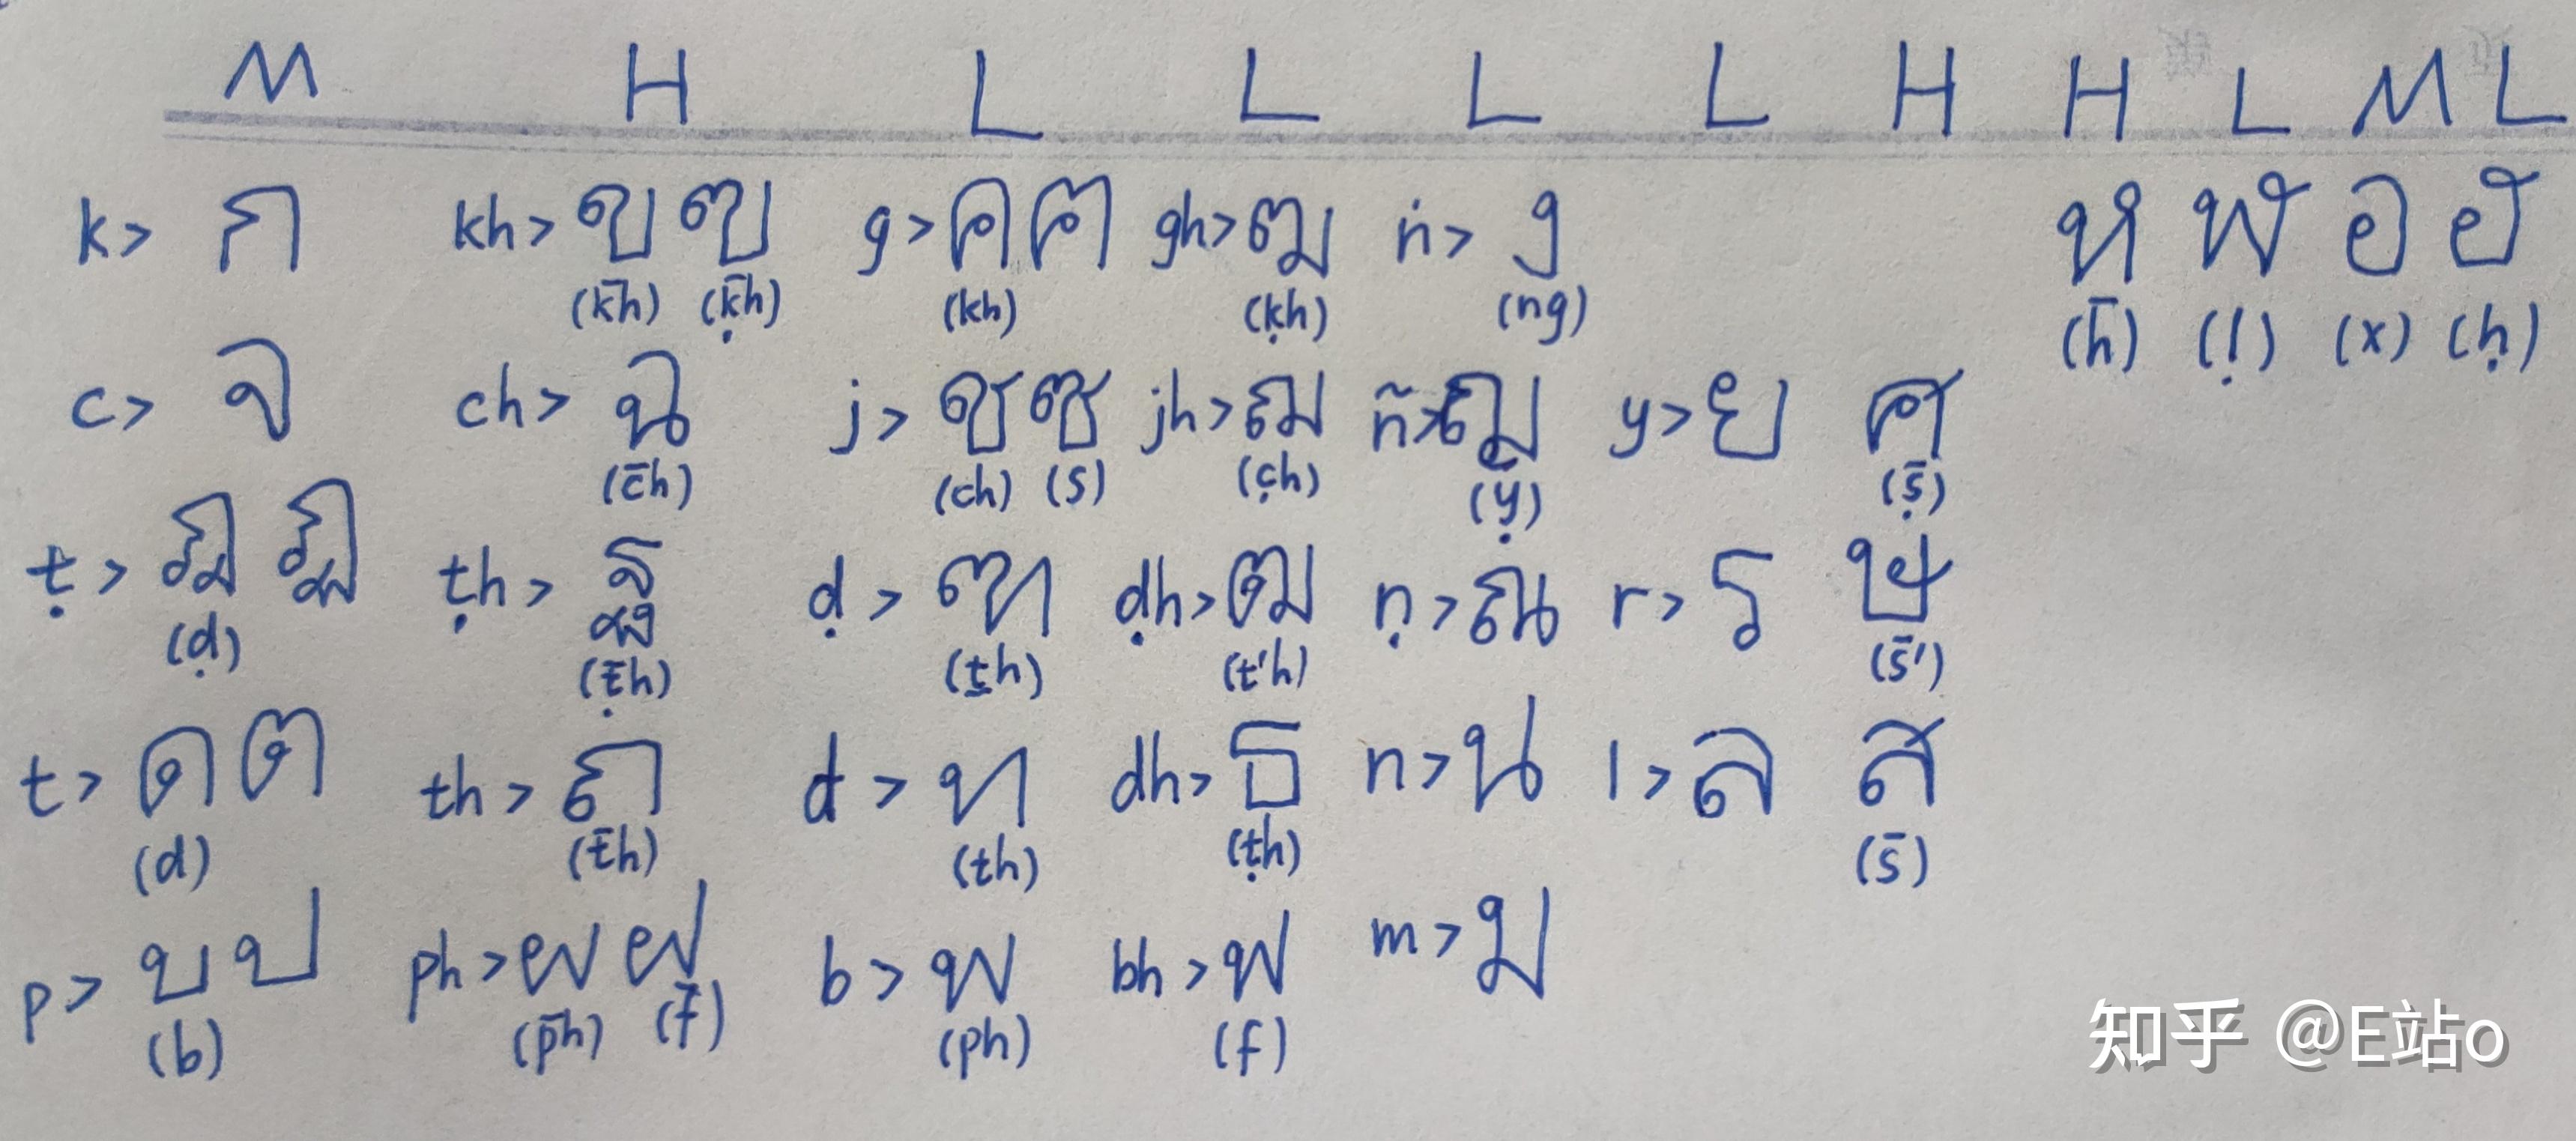 M H L L L L H H L M L
k> ก kh> ข ฃ g> ค ฅ gh> ฆ ṅ> ง ห ฬ อ ฮ
(k̄h) (ḳ̄h) (kh) (ḳh) (ng) (h̄) (ḷ) (x) (ḥ)
c> จ ch> ฉ j> ช ซ jh> ฌ ñ> ญ y> ย ศ
(c̄h) (ch) (s) (c̣h) (ỵ) (ṣ̄)
ṭ> ฎ ฏ ṭh> ฐ ḍ> ฑ ḍh> ฒ ṇ> ณ r> ร ษ
(ḍ) (ṭ̄h) (ṯh) (t'h) (s̄')
t> ด ต th> ถ d> ท dh> ธ n> น l> ล ส
(d) (t̄h) (th) (ṭh) (s̄)
p> บ ป ph> ผ ฝ b> พ bh> ฟ m> ม
(b) (p̄h) (f̄) (ph) (f)
知乎 @E站o